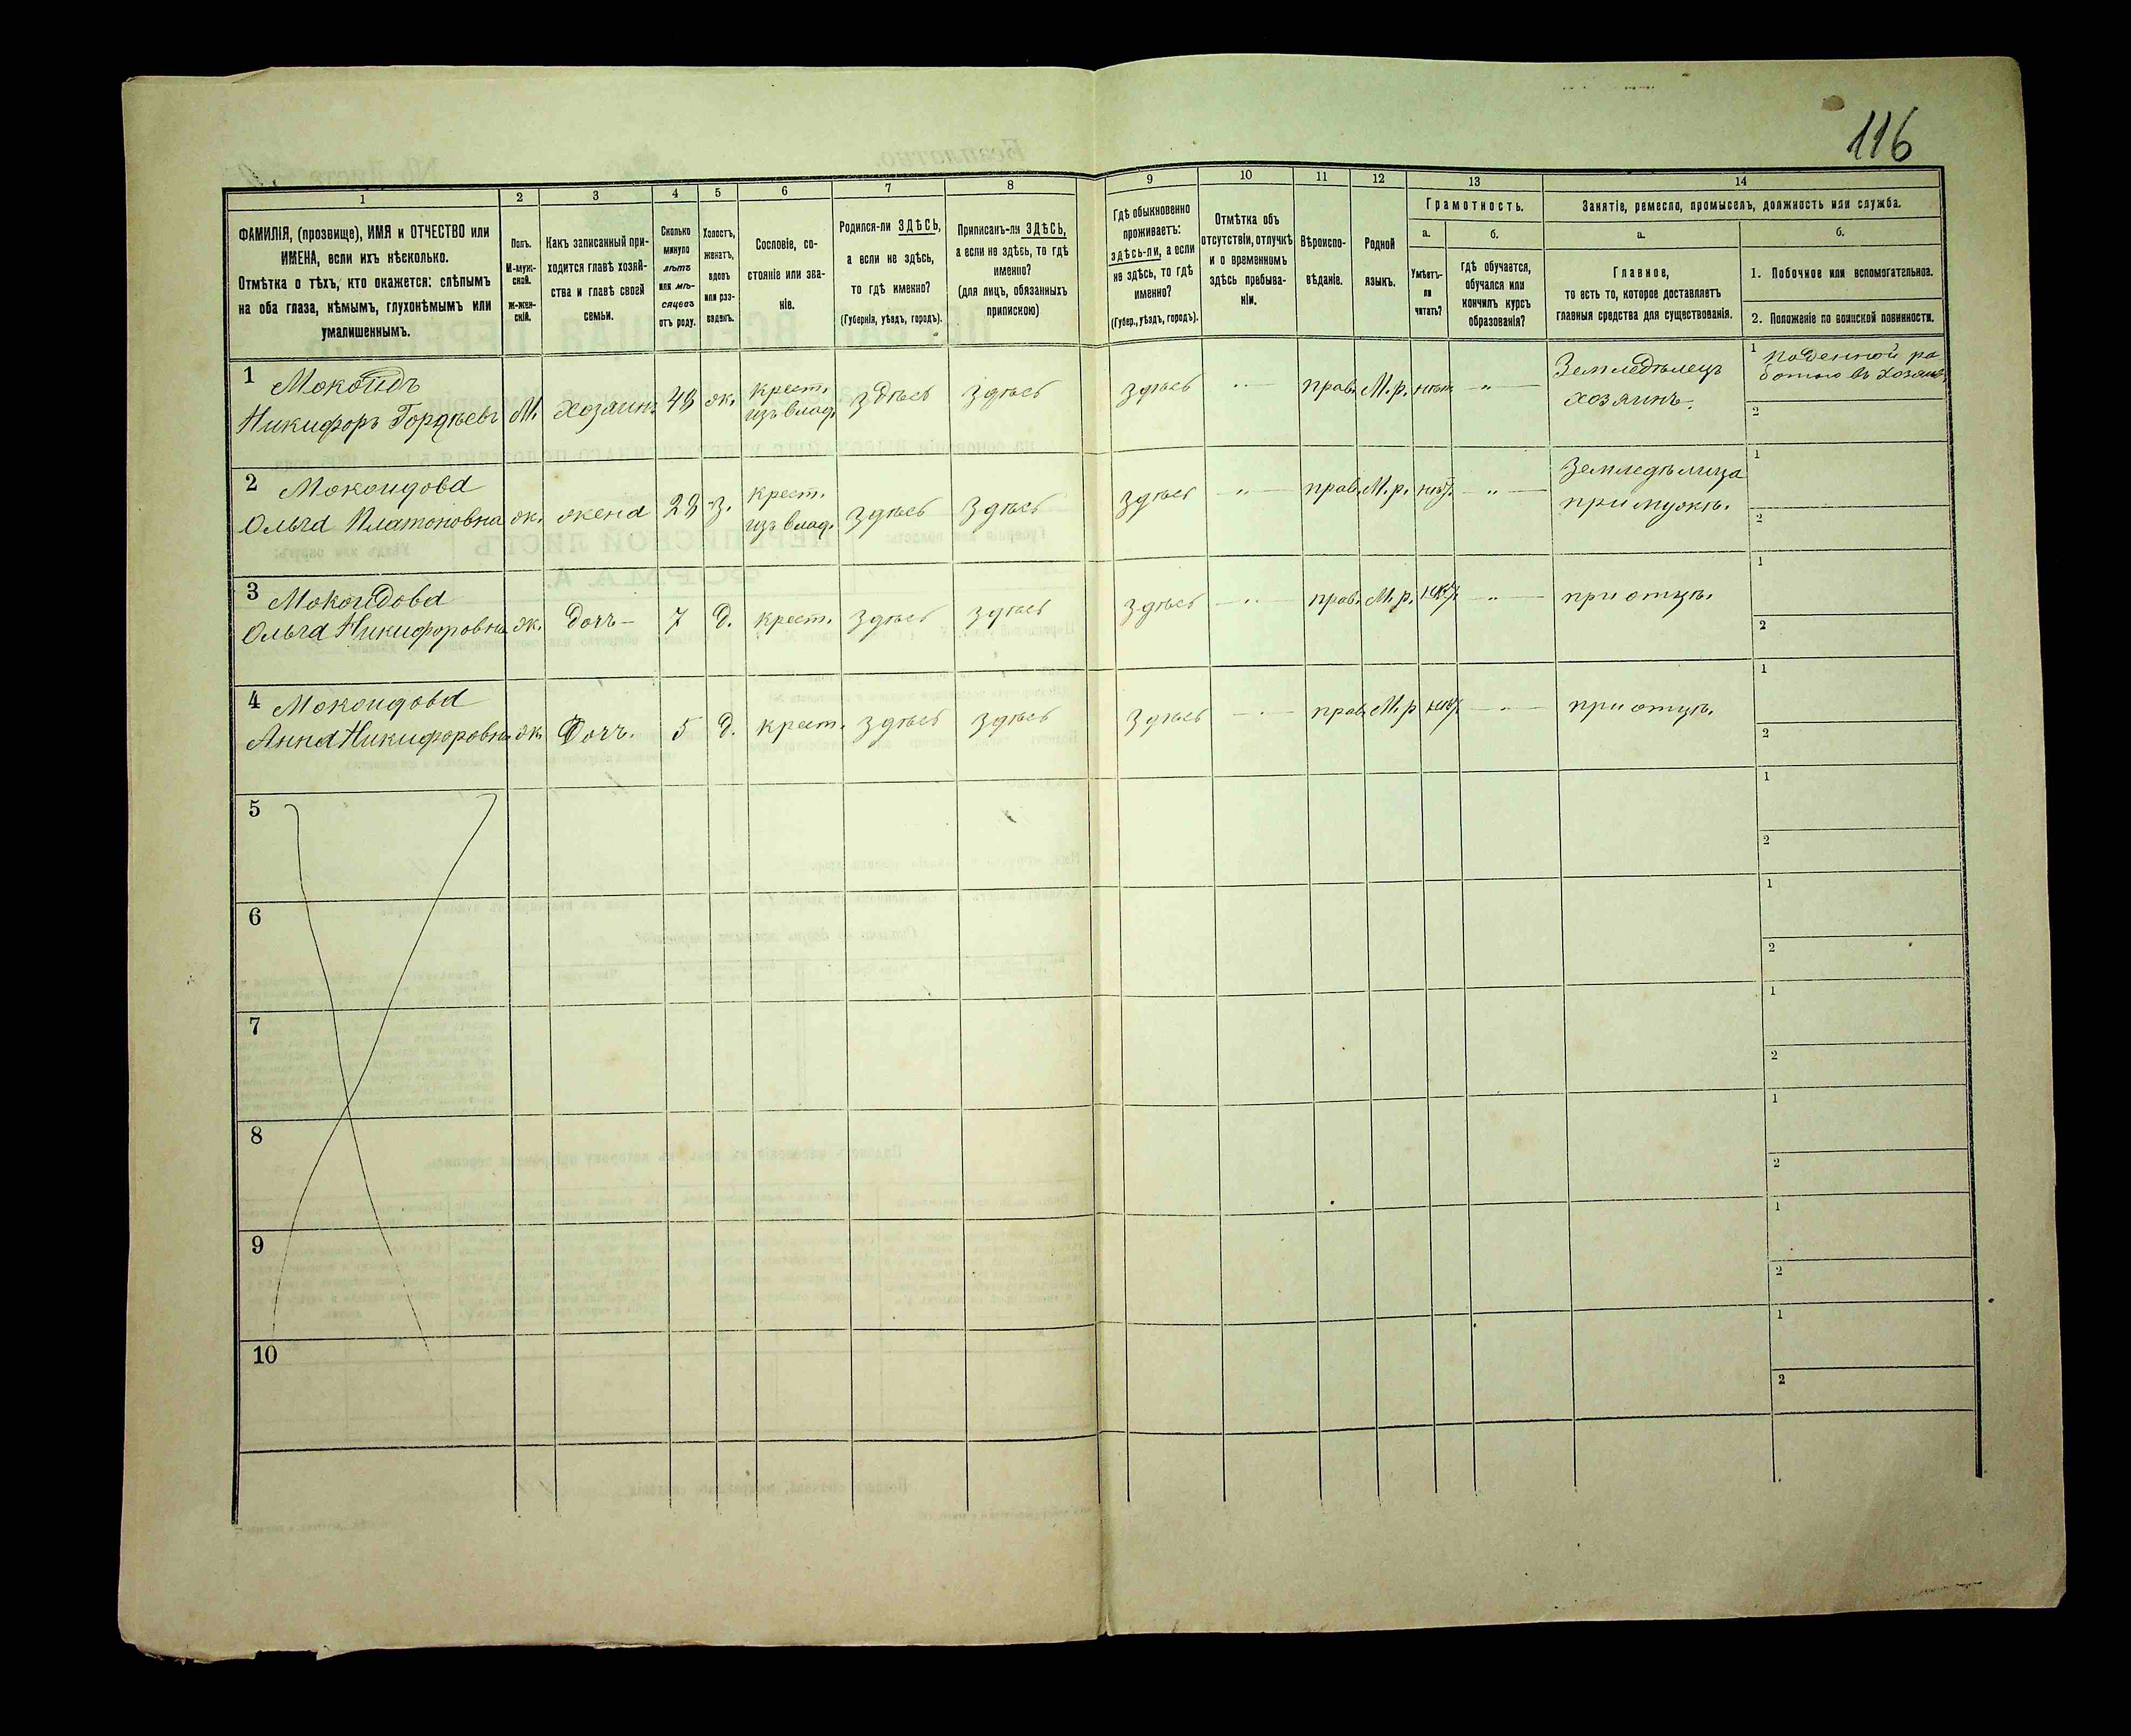 116
1 2 3 4 5 6 7 8 9 10 11 12 13 14
ФАМИЛІЯ, (прозвище), ИМЯ и ОТЧЕСТВО или
ИМЕНА, если ихъ нѣсколько.
Отмѣтка о тѣхъ, кто окажется: слѣпымъ
на оба глаза, нѣмымъ, глухонѣмымъ или
умалишеннымъ.
Полъ.
М-муж-
ской.
ж-жен-
скій.
Какъ записанный при-
ходится главѣ хозяй-
ства и главѣ своей
семьи.
Сколько
минуло
лѣтъ
или мѣ-
сяцевъ
отъ роду.
Холостъ,
женатъ,
вдовъ
или раз-
веденъ.
Сословіе, со-
стояніе или зва-
ніе.
Родился-ли ЗДѢСЬ,
а если не здѣсь,
то гдѣ именно?
(Губернія, уѣздъ, городъ).
Приписанъ-ли ЗДѢСЬ,
а если не здѣсь, то гдѣ
именно?
(для лицъ, обязанныхъ
припискою)
Гдѣ обыкновенно
проживаетъ:
здѣсь-ли, а если
не здѣсь, то гдѣ
именно?
(Губер., уѣздъ, городъ).
Отмѣтка объ
отсутствіи, отлучкѣ
и о временномъ
здѣсь пребыва-
ніи.
Вѣроиспо-
вѣданіе.
Родной
языкъ.
Грамотность.
а.
Умѣетъ-
ли
читать?
б.
гдѣ обучается,
обучался или
кончилъ курсъ
образованія?
Занятіе, ремесло, промыселъ, должность или служба.
а.
Главное,
то есть то, которое доставляетъ
главныя средства для существованія.
б.
1. Побочное или вспомогательное.
2. Положеніе по воинской повинности.
1 Мокоидъ
Никифоръ Гордѣевъ М. хозяинъ 48 ж. крест. изъ влад. здѣсь здѣсь здѣсь — " — прав. М.р. нѣтъ — " — Земледѣлецъ
хозяинъ.
1 Поденной ра
ботою въ
2
2 Мокоидова
Ольга Платоновна ж. жена 28 з. крест. изъ влад. здѣсь здѣсь здѣсь — " — прав. М.р. нѣт. — " — Земледѣлица
при мужѣ.
1
2
3 Мокоидова
Ольга Никифоровна ж. дочь — 7 д. крест. здѣсь здѣсь здѣсь — " — прав. М.р. нѣт. — " — при отцѣ.
1
2
4 Мокоидова
Анна Никифоровна ж. дочь. 5 д. крест. здѣсь здѣсь здѣсь — " — прав. М.р. нѣт. — " — при отцѣ.
1
2
5
1
2
6
1
2
7
1
2
8
1
2
9
1
2
10
1
2